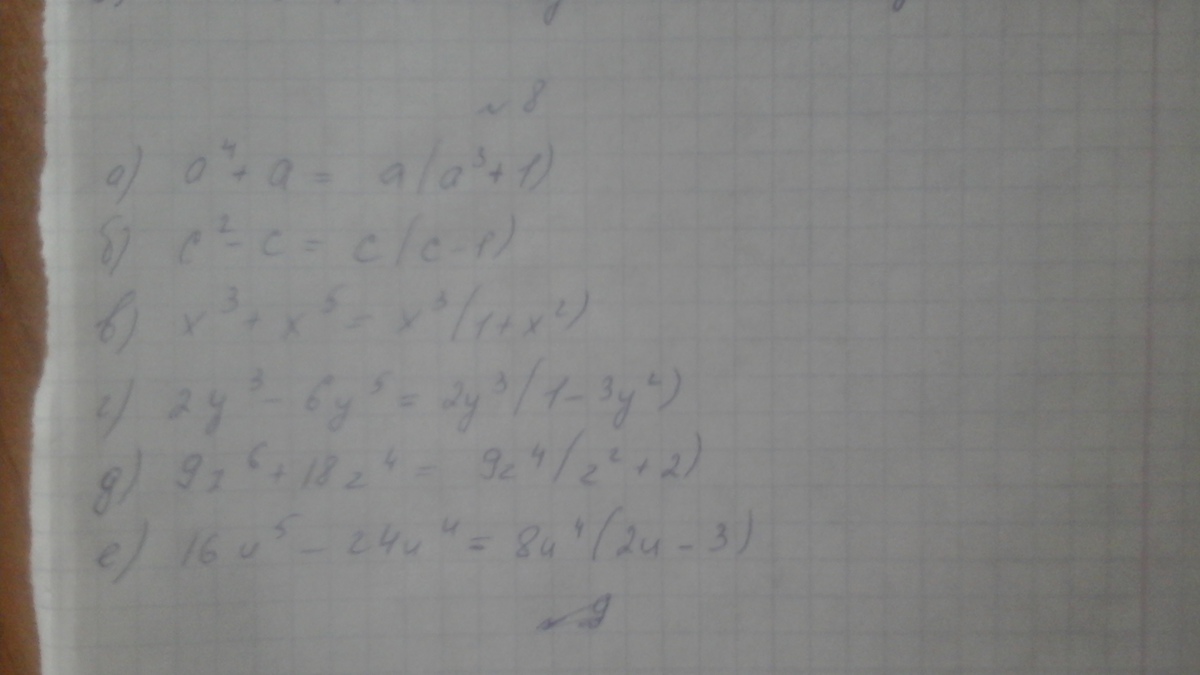 № 8
а) a⁴ + a = a(a³ + 1)
б) c² - c = c(c - 1)
в) x³ + x⁵ = x³(1 + x²)
г) 2y³ - 6y⁵ = 2y³(1 - 3y²)
д) 9z⁶ + 18z⁴ = 9z⁴(z² + 2)
е) 16u⁵ - 24u⁴ = 8u⁴(2u - 3)
№ 9